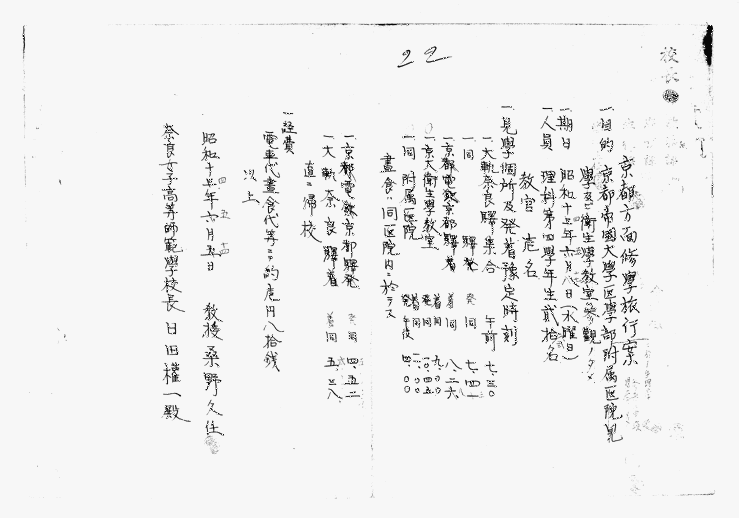 22
校長
京都方面修學旅行案
一目的 京都帝國大學医學部附属医院見
學及ビ衛生學教室参觀ノタメ
一期日 昭和十三年六月八日(水曜日)
一人員 理科第四學年生貳拾名
教官 壱名
一見學個所及発着豫定時刻
一大軌奈良驛集合 午前 七、三〇
一同 驛発 発同 七、四一
一京都電鉄京都驛着 着同 八、二六
一京大衛生學教室 着同 九、〇〇 発同 一〇、四五
一同 附属医院 発午後 四、〇〇
晝食ハ同医院内ニ於テス
一京都電鉄京都驛発 発同 四、五二
一大軌奈良驛着 着同 五、三八
直ニ帰校
一経費
電車代晝食代等ニテ約壱円八拾銭
以上
昭和十三年六月五日
教授 桑野久任
奈良女子高等師範學校長 日田權一殿